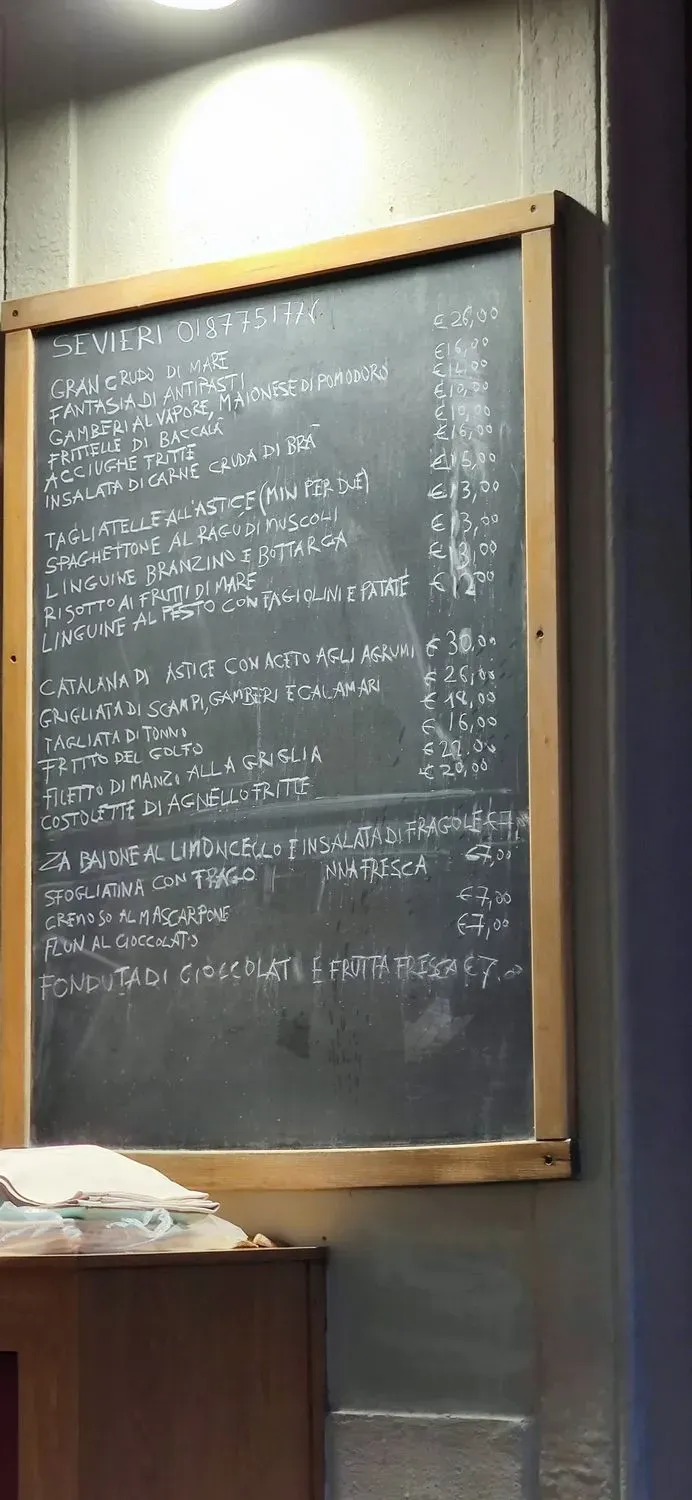 SEVIERI
GRAN CRUDO DI MARE €26,00
FANTASIA DI ANTIPASTI €16,00
GAMBERI AL VAPORE, MAIONESE DI POMODORO €14,00
FRITTELLE DI BACCALÁ €10,00
ACCIUGHE FRITTE €10,00
INSALATA DI CARNE CRUDA DI BRA €16,00
TAGLIATELLE ALL'ASTICE (MIN PER DUE) €15,00
SPAGHETTONE AL RAGU DI MUSCOLI €13,00
LINGUINE BRANZINO E BOTTARGA €13,00
RISOTTO AI FRUTTI DI MARE €13,00
LINGUINE AL PESTO CON FAGIOLINI E PATATE €12,00
CATALANA DI ASTICE CON ACETO AGLI AGRUMI €30,00
GRIGLIATA DI SCAMPI, GAMBERI E CALAMARI €26,00
TAGLIATA DI TONNO €18,00
FRITTO DEL GOLFO €16,00
FILETTO DI MANZO ALLA GRIGLIA €22,00
COSTOLETTE DI AGNELLO FRITTE €20,00
ZABAIONE AL LIMONCELLO E INSALATA DI FRAGOLE €7,
SFOGLIATINA CON FRAGO NNA FRESCA €7,00
CREMOSO AL MASCARPONE €7,00
FLUN AL CIOCCOLATO €7,00
FONDUTA DI CIOCCOLAT E FRUTTA FRESCA €7,00